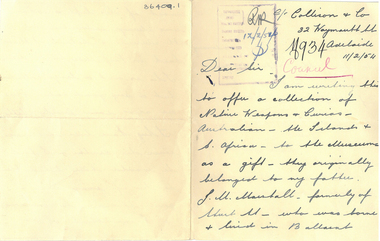 86409.1
C/o Collison & Co
22 Waymouth St
Adelaide
11/2/54
M934
Dear Sir
Council
I am writing this
to offer a collection of
Native Weapons & Curios -
Australian - the Islands &
S. Africa - to the Museums
as a gift - they originally
belonged to my father
J. M. Marshall - formerly of
- who was born
& lived in Ballarat